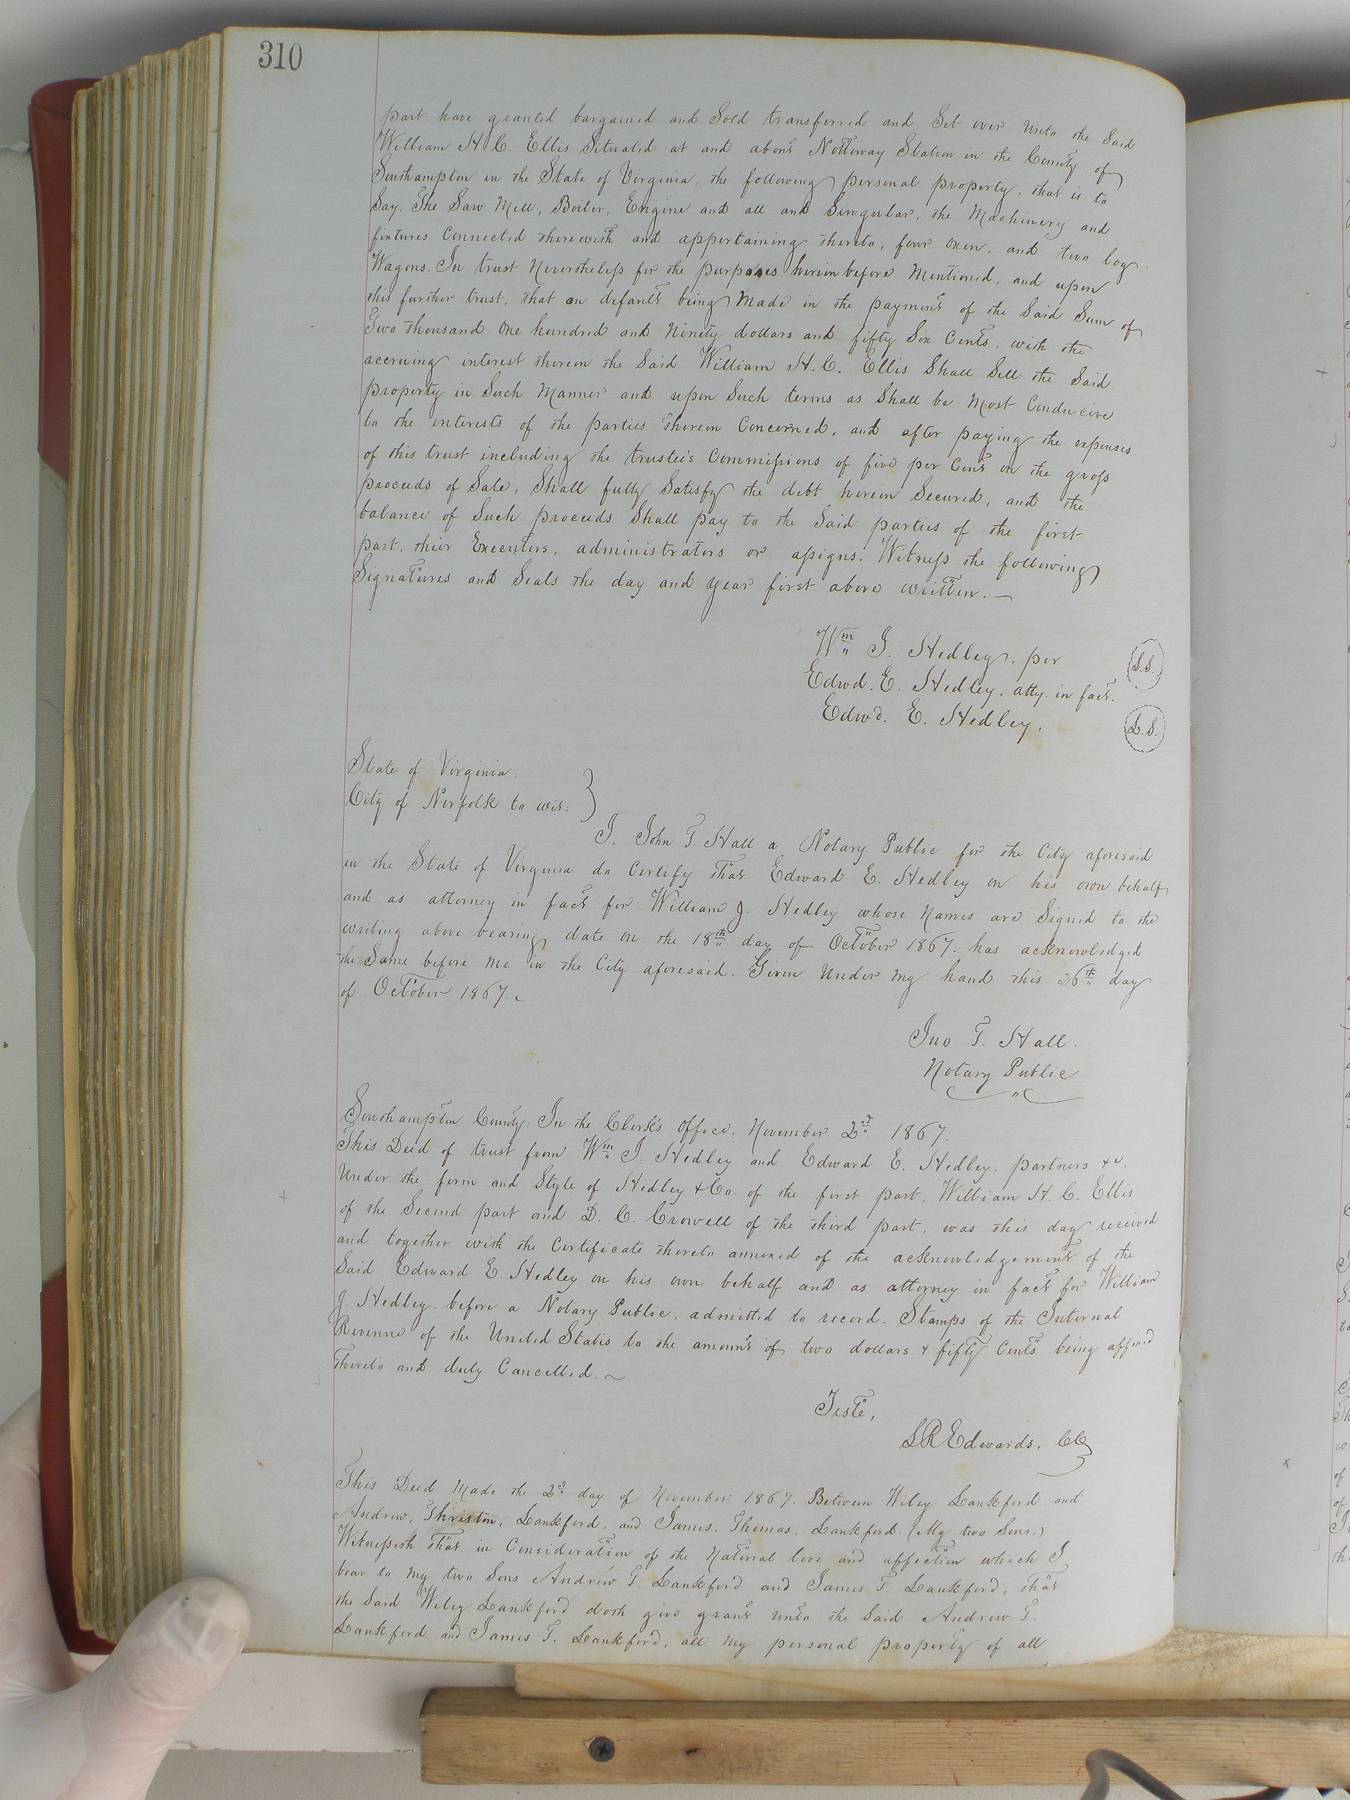 310
part have granted bargained and Sold transferred and Set over Unto the Said
William H. C. Ellis Situated at and about Nottoway Station in the County of
Southampton in the State of Virginia, the following personal property, that is to
Say. The Saw Mill, Boiler, Engine and all and Singular, the Machinery and
fixtures Connected therewith and appertaining thereto, four oxen, and two log
Wagons. In trust Nevertheless for the purposes herein before Mentioned, and upon
this further trust, that on default being Made in the payment of the Said Sum of
Two thousand One hundred and Ninety dollars and fifty Six Cents, with the
accruing interest thereon the Said William H. C. Ellis Shall Sell the Said
property in Such Manner and upon Such terms as Shall be Most Conducive
to the interests of the parties therein Concerned, and after paying the expenses
of this trust including the trustee's Commissions of five per Cent on the gross
proceeds of Sale, Shall fully Satisfy the debt herein Secured, and the
balance of Such proceeds Shall pay to the Said parties of the first
part, their Executors, administrators or assigns. Witness the following
Signatures and Seals the day and year first above written.
Wm J. Hedley, per
L.S.
Edwd. E. Hedley, atty. in fact.
Edwd. E. Hedley.
L.S.
State of Virginia.
City of Norfolk to wit:
I. John T. Hall a Notary Public for the City aforesaid
in the State of Virginia do Certify that Edward E. Hedley on his own behalf
and as attorney in fact for William J. Hedley whose Names are Signed to the
writing above bearing date on the 18th day of October 1867. has acknowledged
the Same before Me in the City aforesaid. Given Under My hand this 26th day
of October 1867.
Jno T. Hall.
Notary Public
Southampton County: In the Clerk's Office, November 2d 1867.
This Deed of trust from Wm J. Hedley and Edward E. Hedley, partners &c.
Under the firm and Style of Hedley & Co. of the first part, William H. C. Ellis
of the Second part and D. C. Crowell of the third part, was this day received
and together with the Certificate thereto annexed of the acknowledgement of the
Said Edward E. Hedley on his own behalf and as attorney in fact for William
J Hedley, before a Notary Public, admitted to record. Stamps of the Internal
Revenue of the United States to the amount of two dollars & fifty Cents being affixed
thereto and duly Cancelled.
Teste,
L R Edwards, CC
This Deed Made the 2d day of November 1867. Between Wiley Lankford and
Andrew, Thriston, Lankford, and James. Thomas. Lankford. (My two Sons.)
Witnesseth that in Consideration of the Natural love and affection which I
bear to My two Sons Andrew T. Lankford and James T. Lankford, that
the Said Wiley Lankford doth give grant unto the Said Andrew T.
Lankford and James T. Lankford, all My personal property of all